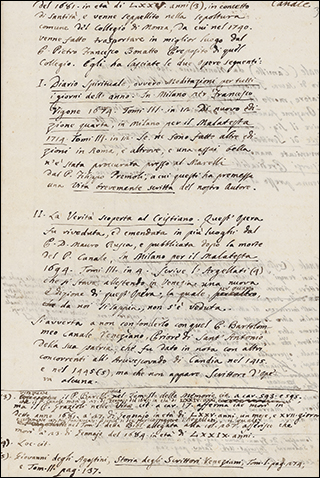 Canale
del 1681. in età di LXXV anni (3), in concetto
di Santità, e venne seppellito nella sepoltura
comune del Collegio di Roma, da cui nel 1740.
venne fatto trasportare in miglior luogo dal
P. Pietro Francesco Bonatto Preposito di quel
Collegio. Egli ha lasciate le due opere seguenti:
I. Diario Spirituale, ovvero Meditazioni per tutti
i giorni dell'anno. In Milano per Francesco
Vigone 1674. Tomi III. in 12. Di nuovo edi-
zione quarta, in Milano per il Malatesta
1714 Tomi III. in 12. Se ne sono fatte altre edi-
zioni in Roma, e altrove, e una assai bella
n'è stata procurata presso al Marelli
dal P. Filippo Premoli, a cui questi ha premessa
una Vita brevemente scritta del nostro Autore.
II. La Verità scoperta al Cristiano. Quest'Opera
fu riveduta, ed emendata in più luoghi dal
P. D. Mauro Ruscia, e pubblicata dopo la morte
del P. Canale, in Milano per il Malatesta
1694. Tomi III. in 4. Scrive l'Argellati (4)
che si stava allestendo in Venezia una nuova
edizione di quest'Opera, la quale, per
che da noi si sappia, non s'è veduta.
Si avverta a non confonderlo con quel P. Bartolom-
meo Canale Veneziano, Priore di Sant'Antonio
della sua patria che fu dato in nota con altri
concorrenti all'Arcivescovado di Candia nel 1418
e nel 1445 (5), ma che non appare Scrittore d'Ope-
ra alcuna.
(3). il P. Barelli nel Tom. II. delle Memorie ec. a car. 593. e 595.
ma il P. nelle Vite afferma che morì
dell'anno a' 23. di Gennajo in età di LXXV anni, un mese, e XVII. giorni
nel Tom. I. della Bibl. allegata alla col. 267. asserisce che
morì a' 23 di Gennajo del 1684 in età di LXXIX anni.
(4). Loc. cit.
(5). Giovanni degli Agostini, Storia degli Scrittori Veneziani, Tom. I. pag. 174.
e Tom. II. pag. 137.